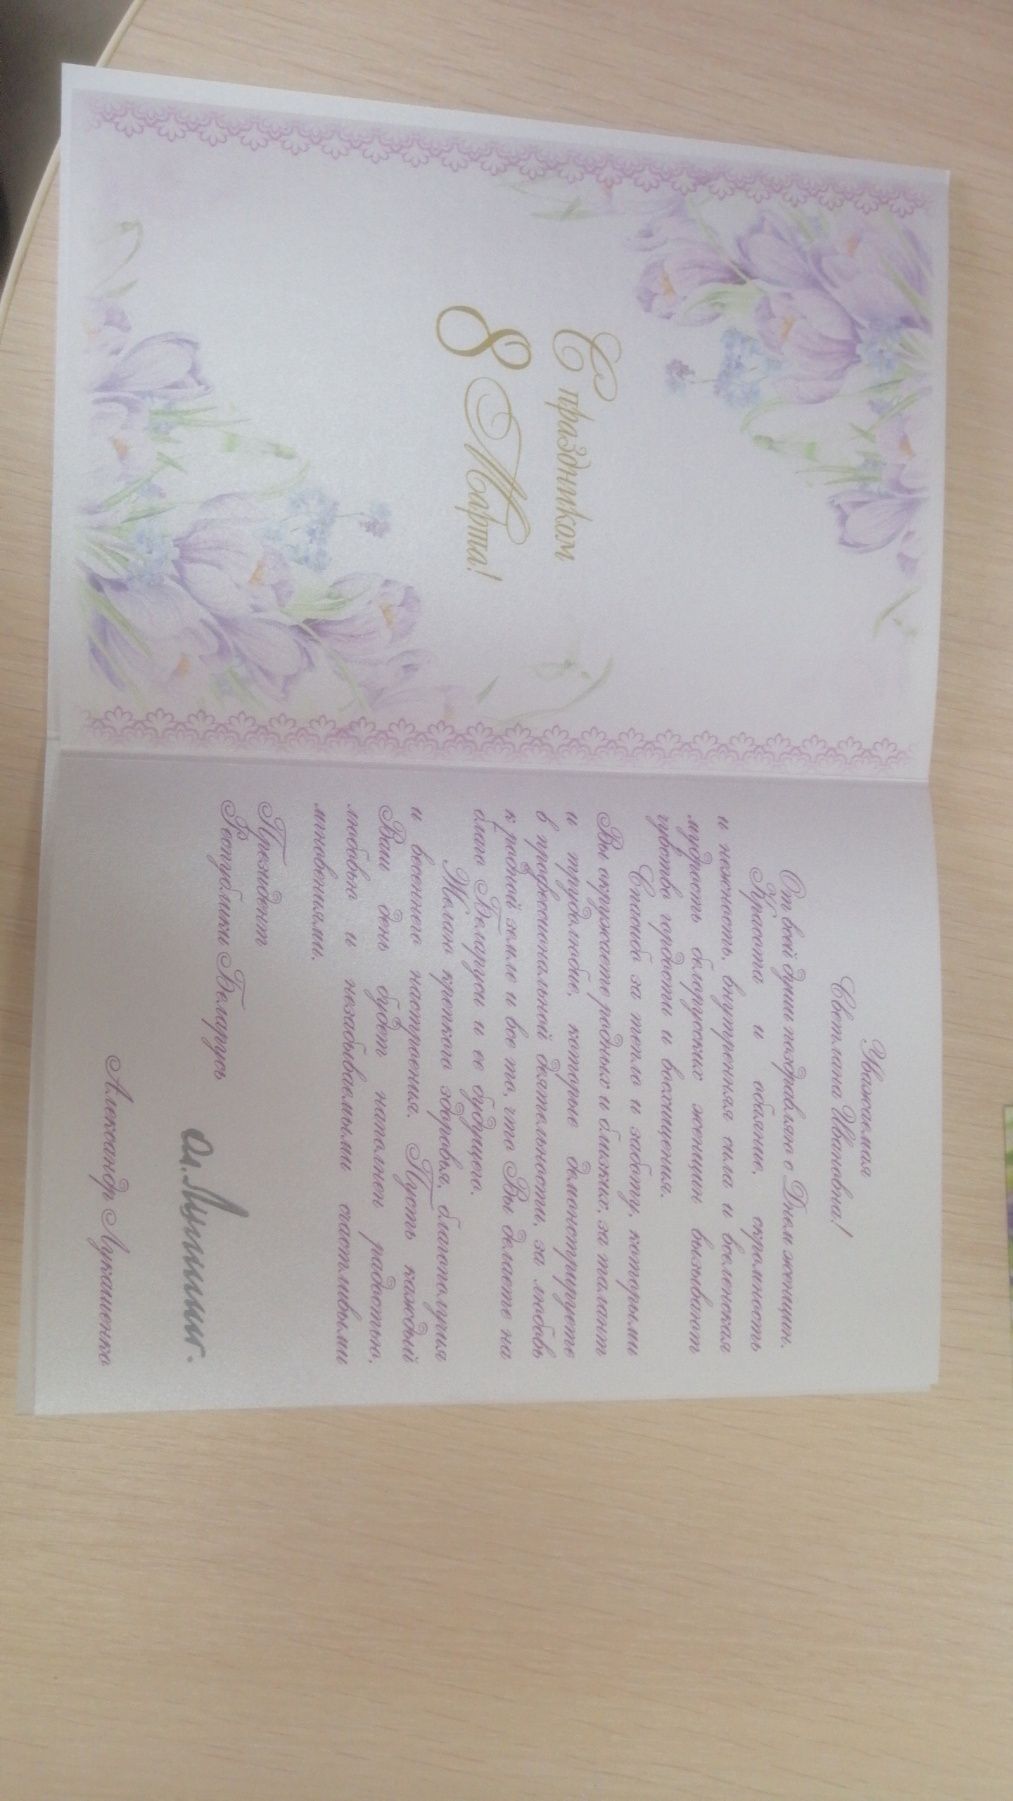 С праздником
8 Марта!
Уважаемая
Светлана Ивановна!
От всей души поздравляю с Днем женщин.
Красота и обаяние, скромность
и нежность, внутренняя сила и вселенская
мудрость белорусских женщин вызывают
чувство гордости и восхищения.
Спасибо за тепло и заботу, которыми
Вы окружаете родных и близких, за талант
и трудолюбие, которые демонстрируете
в профессиональной деятельности, за любовь
к родной земле и все то, что Вы делаете на
благо Беларуси и ее будущего.
Желаю крепкого здоровья, благополучия
и весеннего настроения. Пусть каждый
Ваш день будет наполнен радостью,
любовью и незабываемыми счастливыми
мгновениями.
Президент
Республики Беларусь
Александр Лукашенко